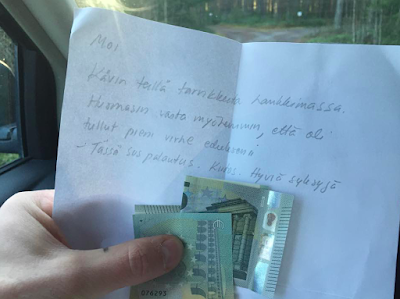 Moi
Kävin teillä tarvikkeita hankkimassa.
Huomasin vasta myöhemmin, että oli
tullut pieni virhe edukseni
- Tässä sus palautus. Kiitos. Hyviä syksyjä
076293